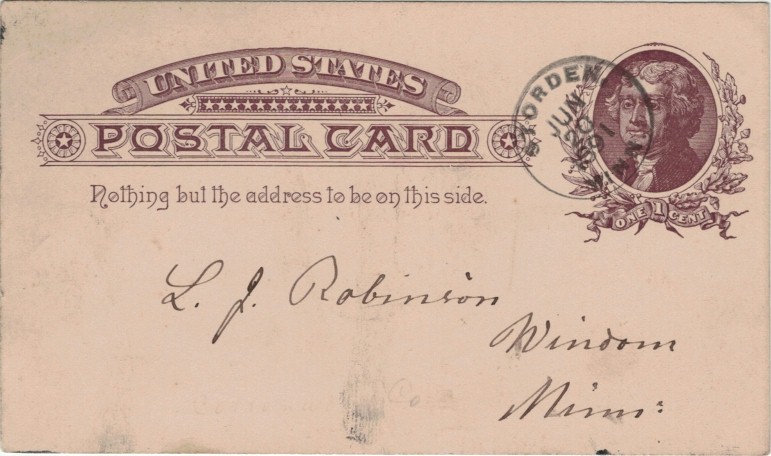 UNITED STATES
POSTAL CARD
Nothing but the address to be on this side.
STORDEN
JUN
20
1901
MINN
ONE 1 CENT
L. J. Robinson
Windom
Minn: